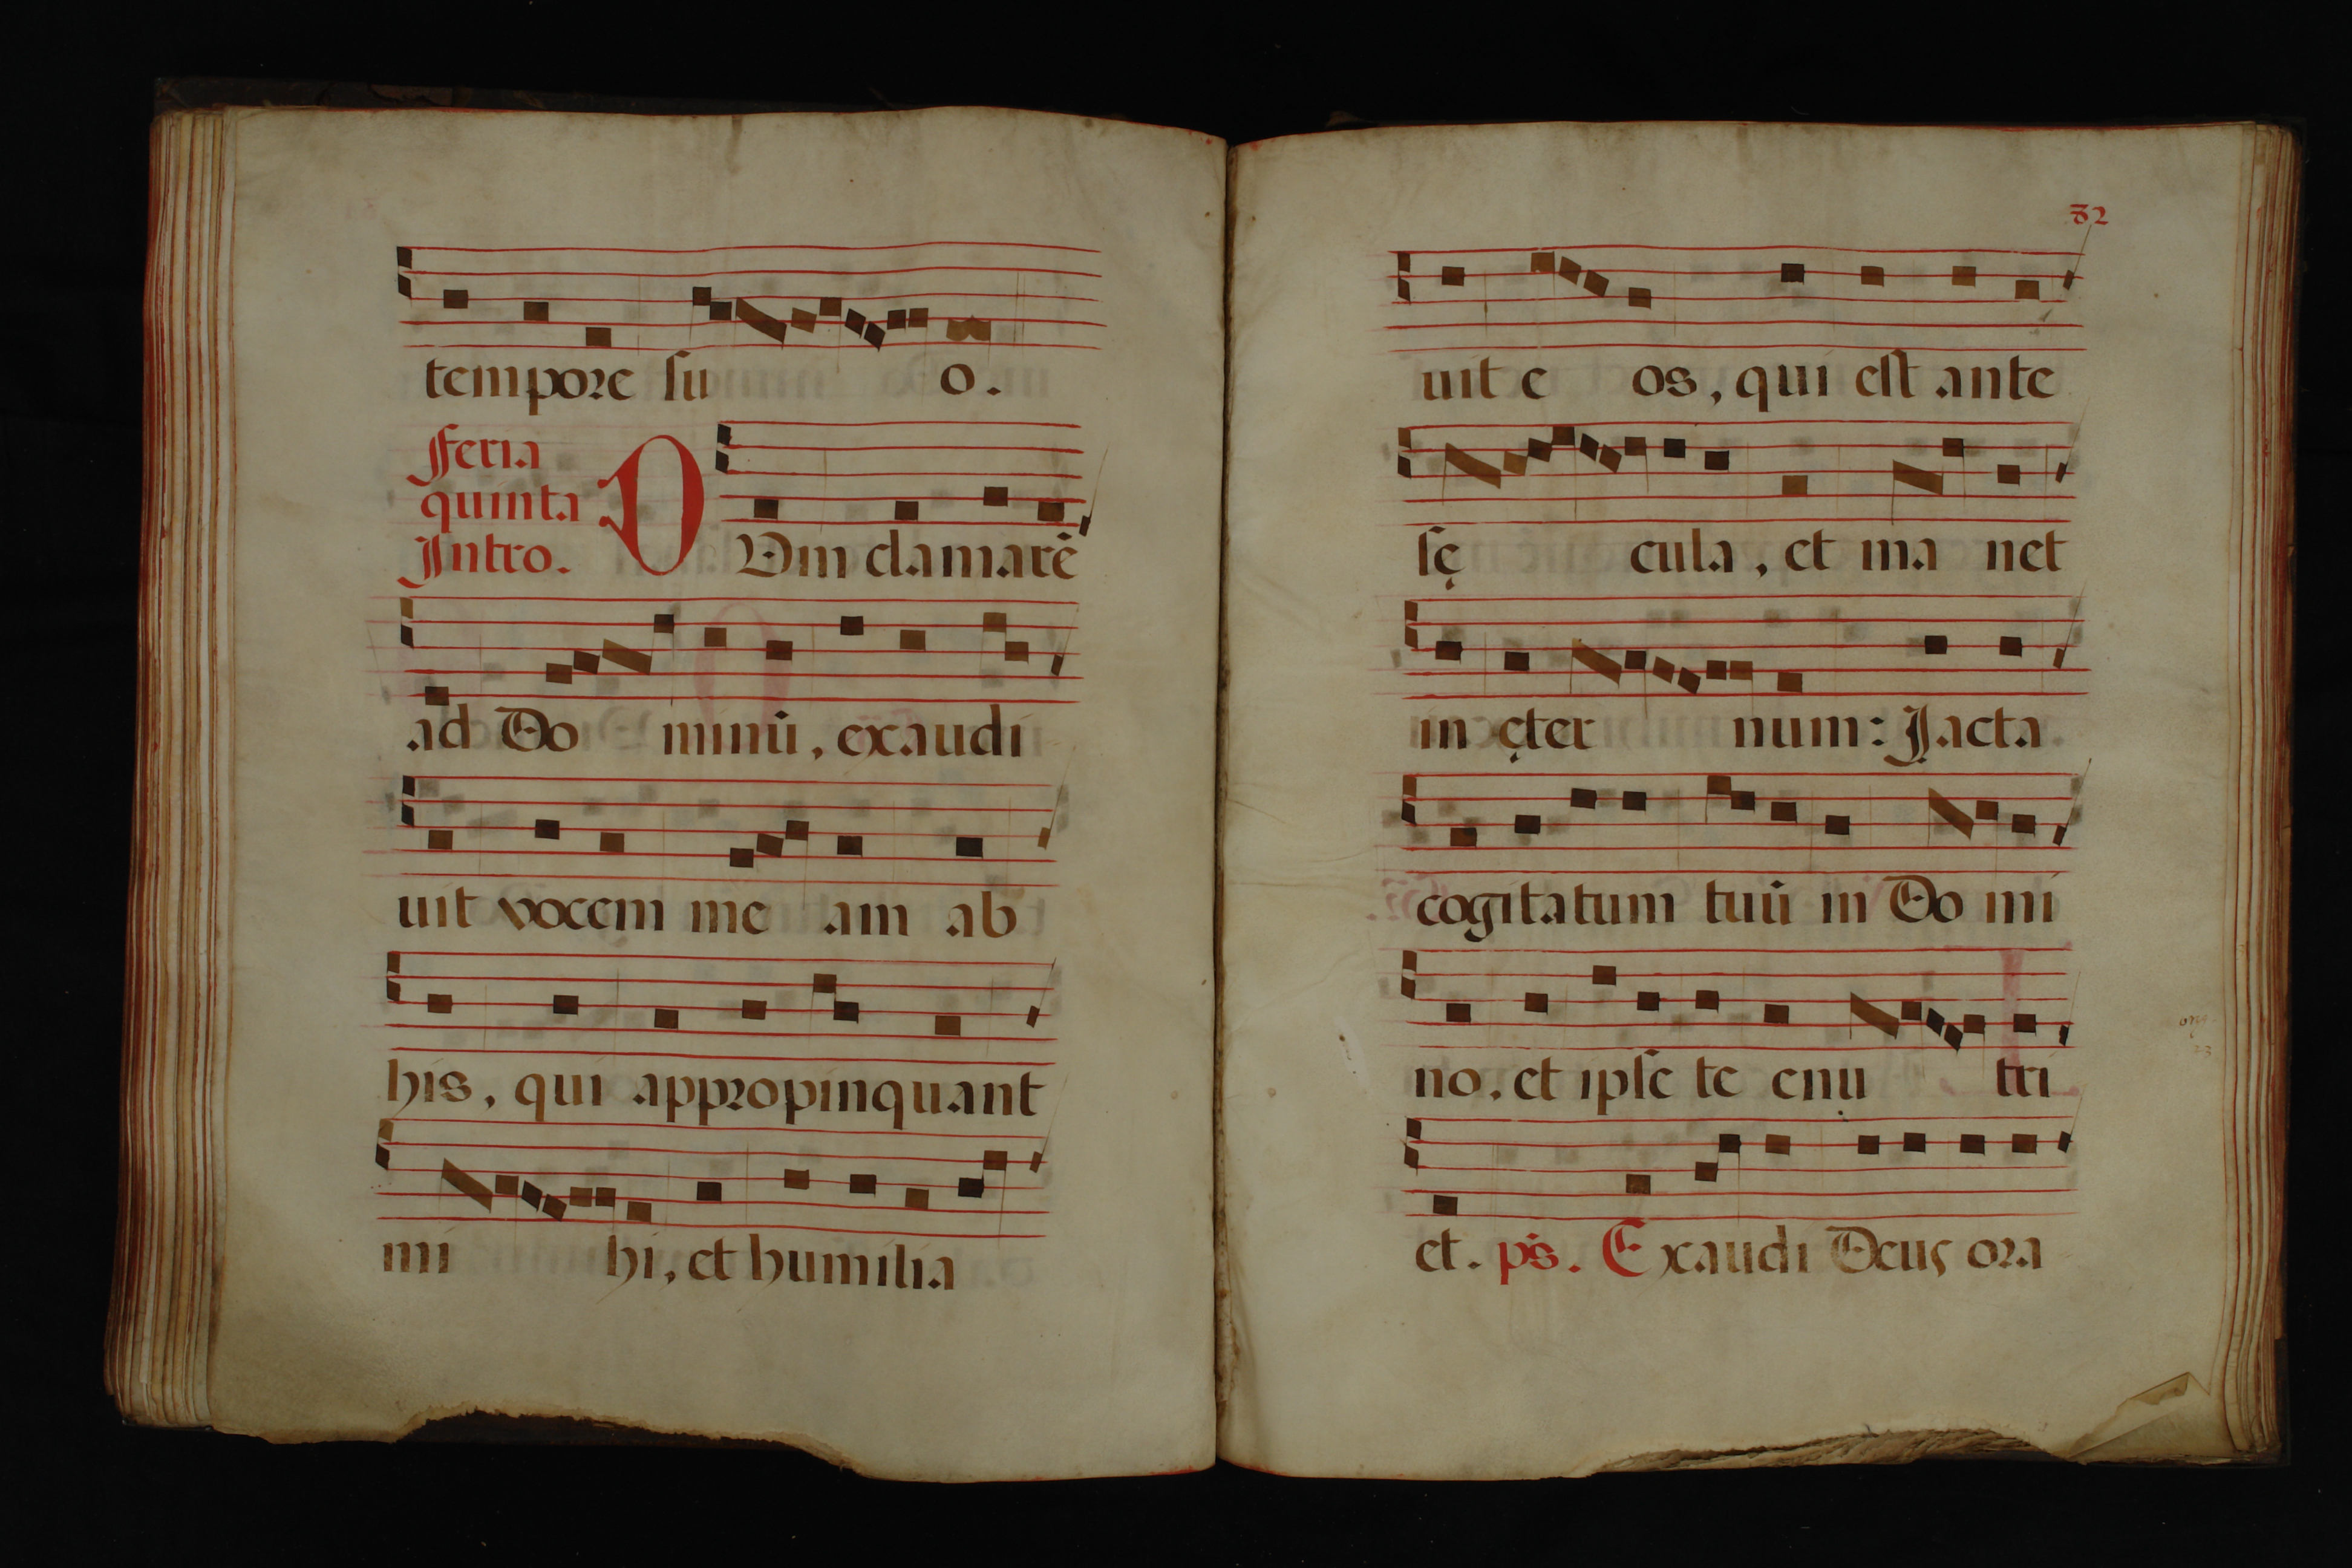 tempore suo.
Feria
quinta
Intro.
DUm clamarē
ad Dominū, exaudi
uit vocem meam ab
his, qui appropinquant
mihi, et humilia
82
uit eos, qui est ante
sęcula, et manet
in ęternum: Jacta
cogitatum tuū in Domi
no, et ipse te enutri
et. ps. Exaudi Deus ora